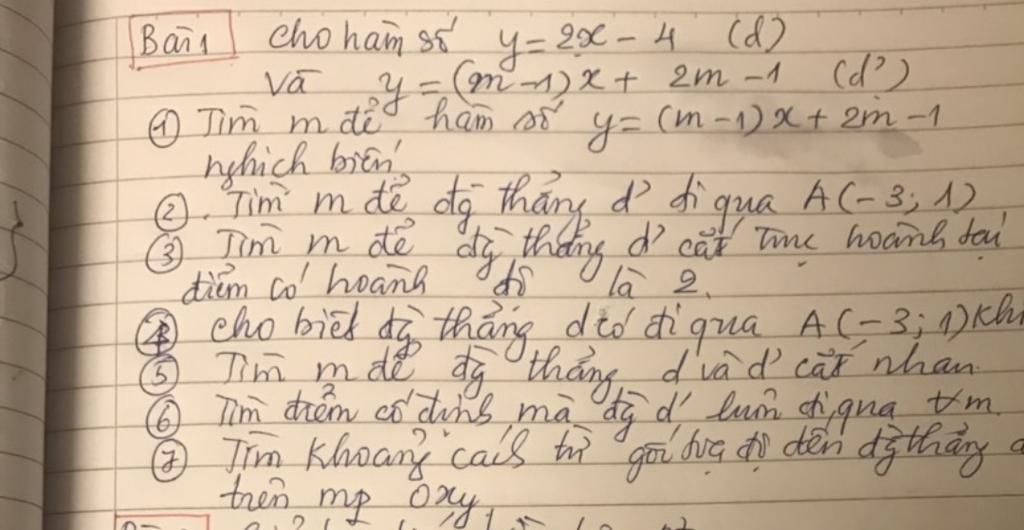 Bài 1 Cho hàm số y = 2x - 4 (d)
Và y = (m - 1)x + 2m - 1 (d')
① Tìm m để hàm số y = (m - 1)x + 2m - 1
nghịch biến
②. Tìm m để đg thẳng d' đi qua A(-3; 1)
③ Tìm m để đg thẳng d' cắt trục hoành tại
điểm có hoành độ là 2.
④ Cho biết đg thẳng d có đi qua A(-3; 1) Kh
⑤ Tìm m để đg thẳng d và d' cắt nhau.
⑥ Tìm điểm cố định mà đg d' luôn đi qua ∀m.
⑦ Tìm Khoảng cách từ gốc tọa độ đến đg thẳng
trên mp Oxy